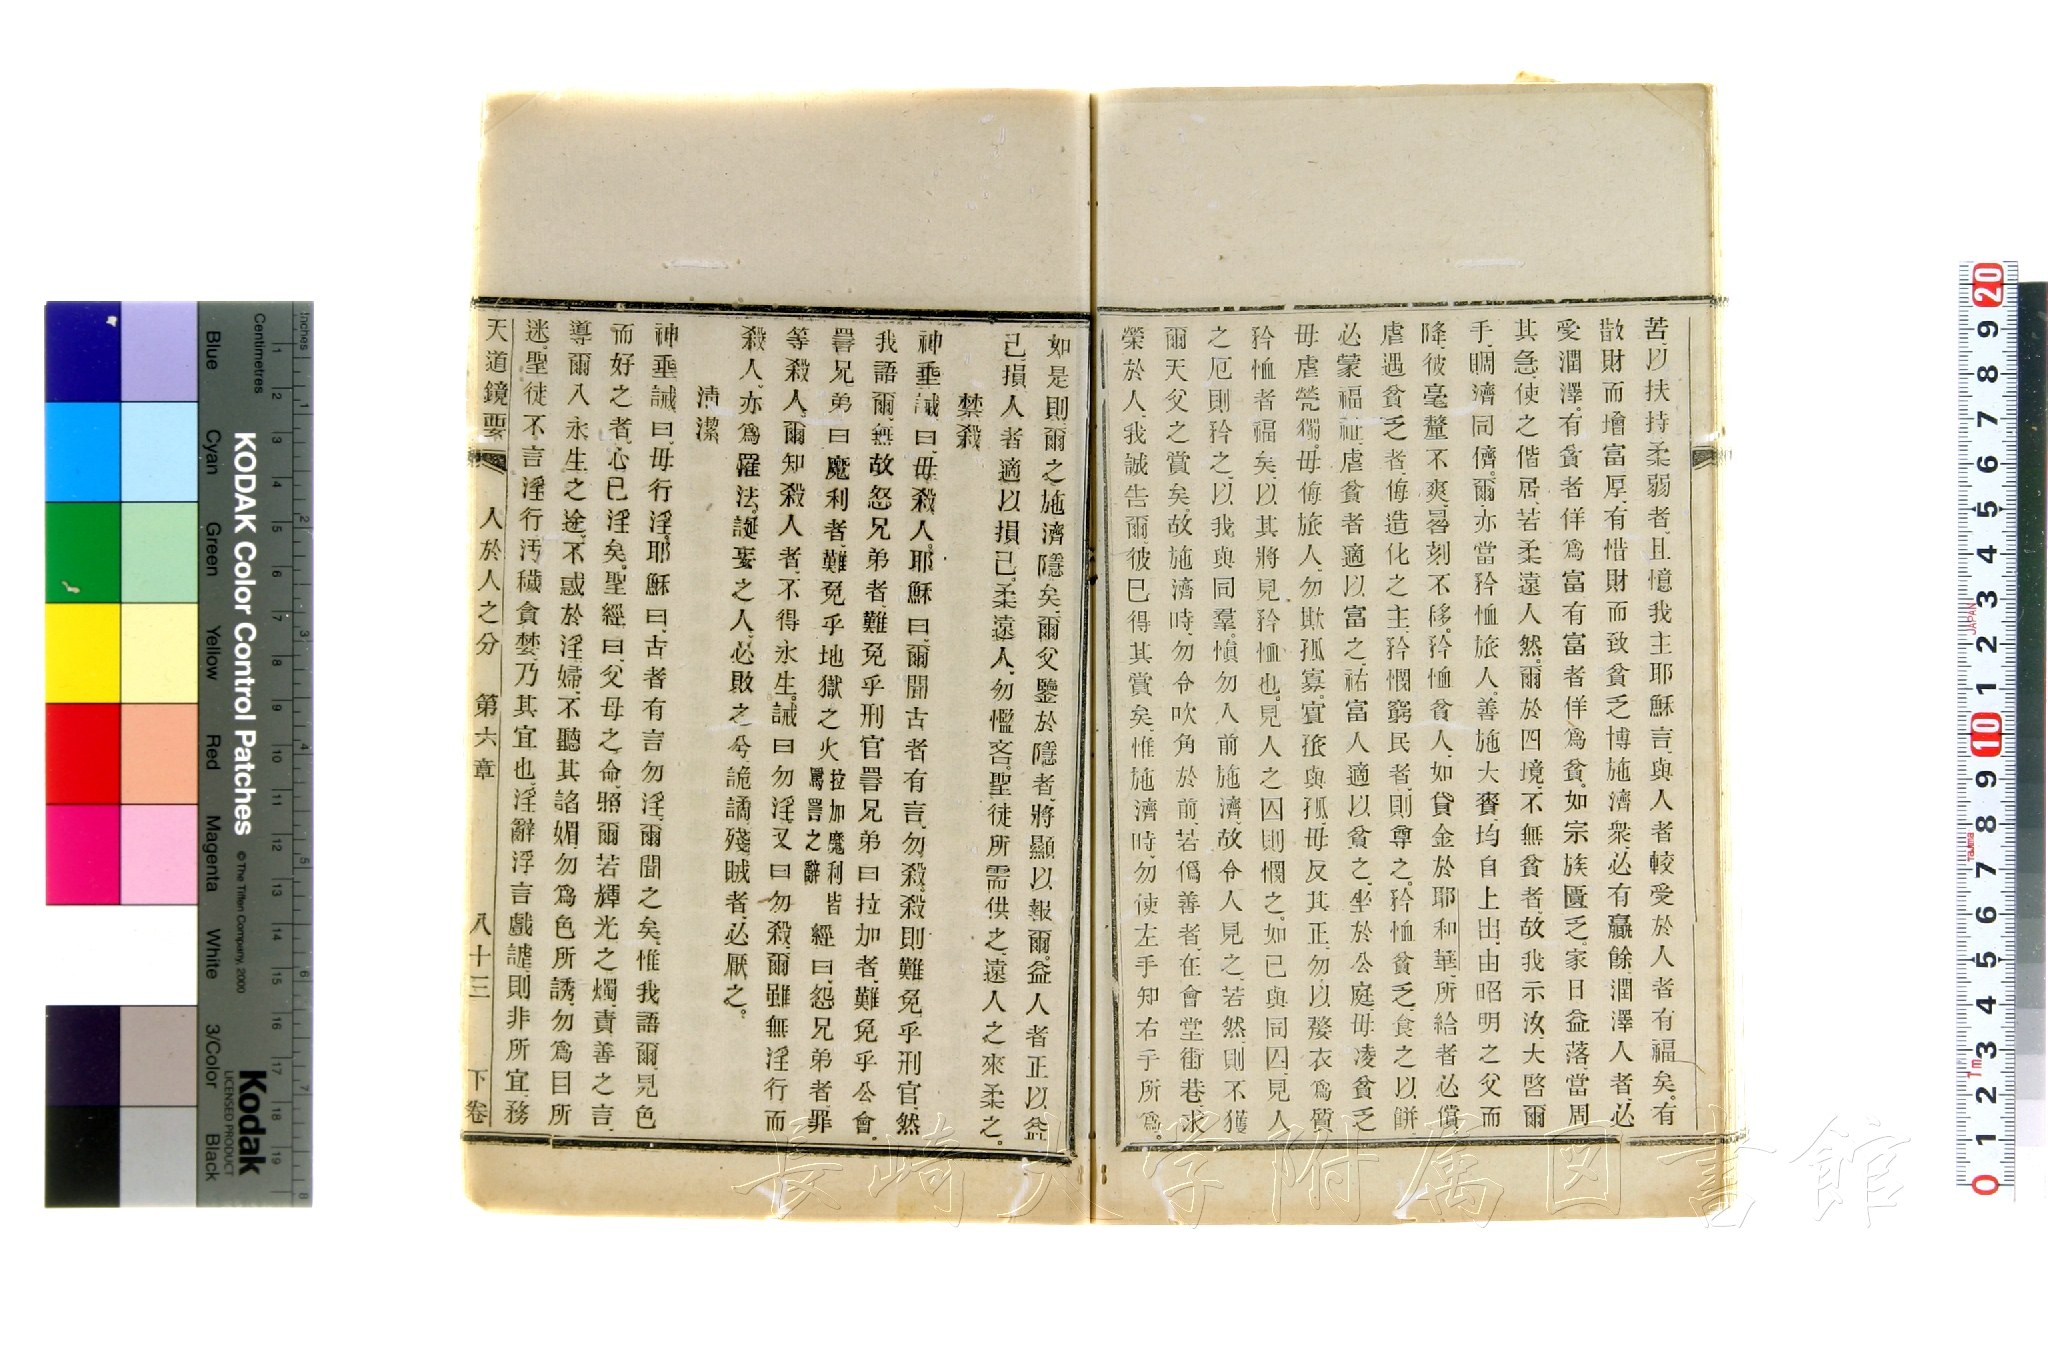 苦以扶持柔弱者、且憶我主耶穌言、與人者較受於人者有福矣。有
散財而增富厚、有惜財而致貧乏、博施濟衆、必有贏餘、潤澤人者、必
受潤澤。有貧者佯爲富、有富者佯爲貧。如宗族匱乏、家日益落、當周
其急、使之偕居、若柔遠人然。爾於四境、不無貧者、故我示汝、大啓爾
手、賙濟同儕、爾亦當矜恤旅人。善施大賚、均自上出、由昭明之父而
降、彼毫釐不爽、晷刻不移。矜恤貧人、如貸金於耶和華、所給者必償。
虐遇貧乏者、侮造化之主、矜憫窮民者、則尊之。矜恤貧乏、食之以餅、
必蒙福祉、虐貧者適以富之、祐富人適以貧之。坐於公庭、毋凌貧乏
毋虐煢獨。毋侮旅人、勿欺孤寡。賓旅與孤、毋反其正、勿以嫠衣爲質
矜恤者福矣、以其將見矜恤也。見人之囚則憫之、如已與同囚、見人
之厄則矜之、以我與同羣。愼勿人前施濟、故令人見之、若然、則不獲
爾天父之賞矣。故施濟時、勿令吹角於前、若僞善者、在會堂街巷、求
榮於人、我誠告爾、彼已得其賞矣、惟施濟時、勿使左手知右手所爲。
如是、則爾之施濟隱矣、爾父鑒於隱者、將顯以報爾。益人者正以益
己、損人者適以損己。柔遠人、勿慳吝。聖徒所需供之、遠人之來柔之。
禁殺
神垂誡曰、毋殺人。耶穌曰、爾聞古者有言、勿殺。殺則難免乎刑官、然
我語爾、無故怒兄弟者、難免乎刑官、詈兄弟曰拉加者、難免乎公會、
詈兄弟曰魔利者、難免乎地獄之火 拉加魔利皆罵詈之辭 經曰、怨兄弟者罪
等殺人。爾知殺人者、不得永生。誡曰勿淫、又曰勿殺、爾雖無淫行而
殺人、亦爲罹法。誕妄之人、必敗之、兮詭譎殘賊者、必厭之。
淸潔
神垂誡曰、毋行淫。耶穌曰、古者有言勿淫、爾聞之矣、惟我語爾、見色
而好之者、心已淫矣。聖經曰、父母之命、照爾若輝光之燭、責善之言、
導爾入永生之途、不惑於淫婦、不聽其諂媚、勿爲色所誘、勿爲目所
迷。聖徒不言淫行、汚穢貪婪、乃其宜也、淫辭浮言戲謔、則非所宜、務
天道鏡要 人於人之分 第六章 八十三 下卷
KODAK Color Control Patches
© The Tiffen Company, 2000
Kodak
LICENSED PRODUCT
Inches
Centimetres
Blue
Cyan
Green
Yellow
Red
Magenta
White
3/Color
Black
JAPAN
長崎大学附属図書館